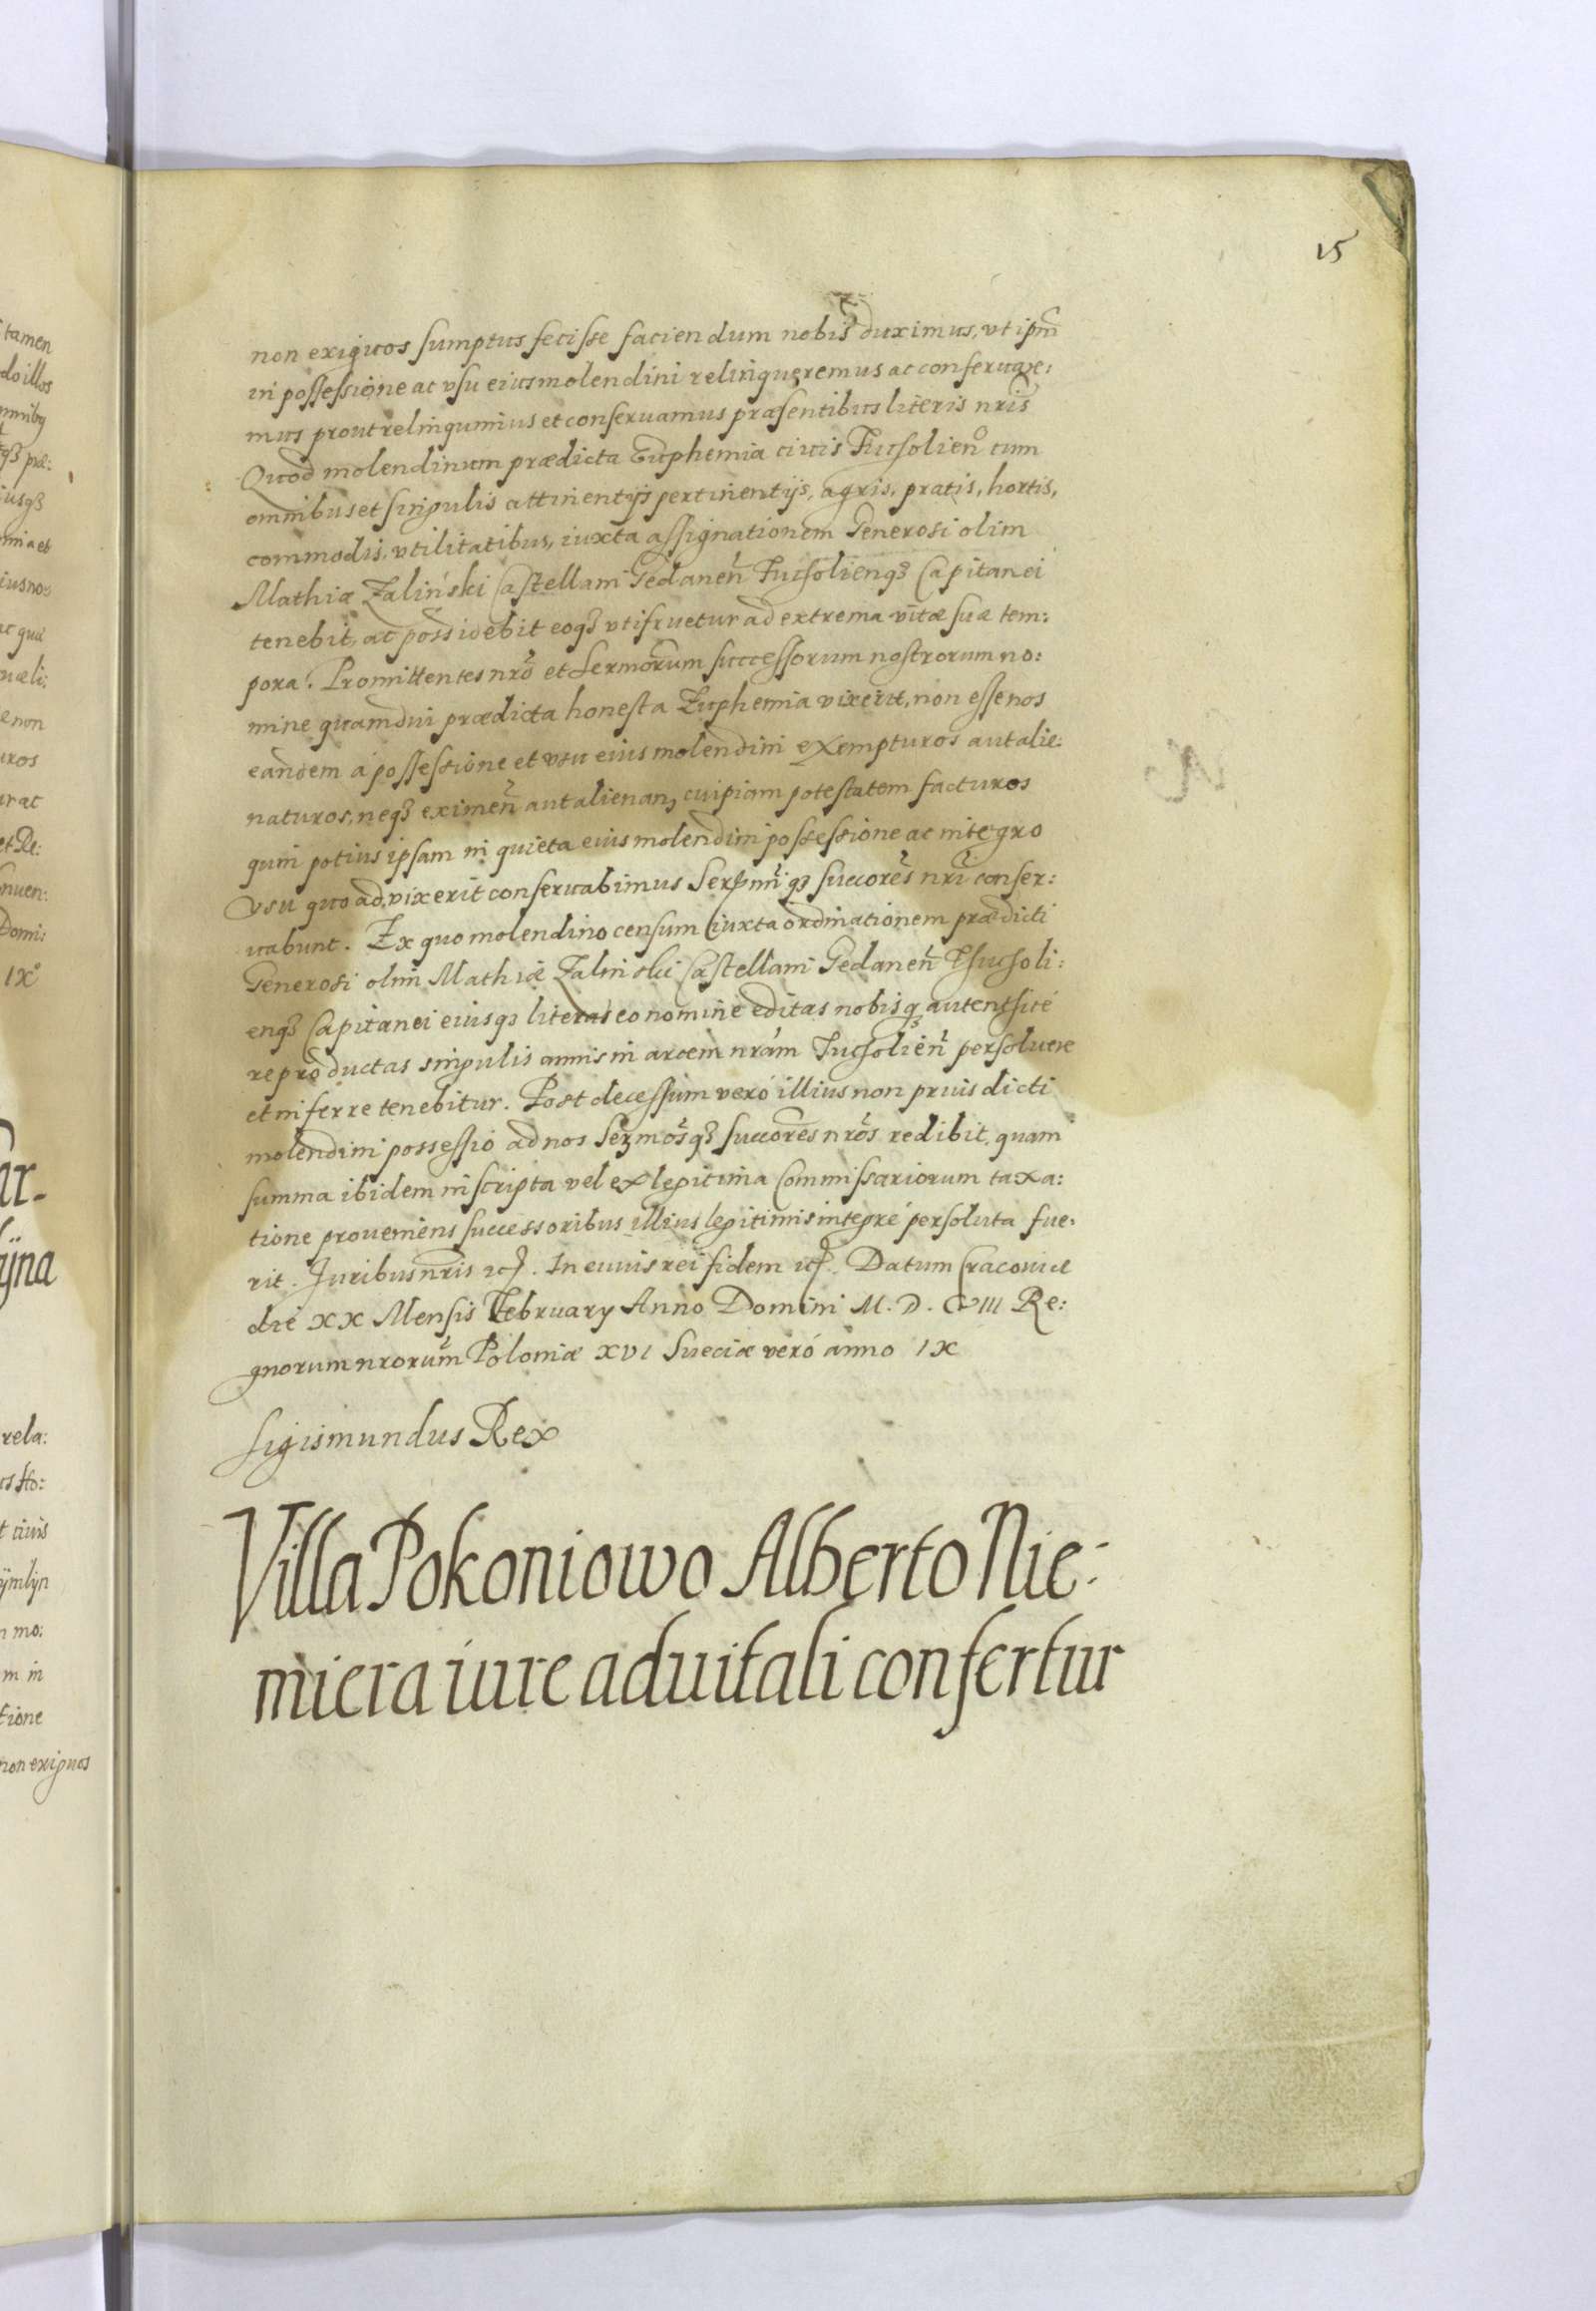 15
non exiguos sumptus fecisse faciendum nobis duximus, vt ipm̃
in possessione ac vsu eius molendini relinqueremus ac conseruare:
mus prout relinquimus et conseruamus præsentibus literis nr̃is
Quod molendinum prædicta Euphemia ciuis Tucholień cum
omnibus et singulis attinentijs pertinentijs, agris, pratis, hortis,
commodis, vtilitatibus, iuxta assignationem Generosi olim
Mathiæ Zaliński Castellani Gedaneń Tucholienqȝ Capitanei
tenebit, ac possidebit eoqȝ vtifruetur ad extrema vitæ suæ tem:
pora. Promittentes nr̃o et Sermorum successorum nostrorum no:
mine quamdiu prædicta honesta Euphemia vixerit, non esse nos
eandem à possessione et vsu eius molendini exempturos aut alie:
naturos, neqȝ eximeñ aut alienanȝ cuipiam potestatem facturos
quin potius ipsam in quieta eius molendini possessione ac integro
vsu quo ad vixerit conseruabimus Sermĩqȝ succores nr̃i conser:
uabunt. Ex quo molendino censum iuxta ordinationem prædicti
Generosi olim Mathiæ Zalinski Castellani Gedaneñ Thucholi:
enqȝ Capitanei eiusqȝ literas eo nomine editas nobisqȝ autenthicé
reproductas singulis annis in arcem nrám Tucholień persoluere
et inferre tenebitur. Post decessum veró illius non prius dicti
molendini possessio ad nos Sermosqȝ succores nr̃os redibit, quam
summa ibidem inscripta vel ex legitima Commissariorum taxa:
tione proueniens successoribus illius legitimis integré persoluta fue:
rit. Juribus nr̃is etc. In cuius rei fidem etc. Datum Cracouiæ
die XX Mensis February Anno Domini M. D. CVIII Re:
gnorum nrorum̃ Poloniæ XVI Sueciæ veró anno IX
Sigismundus Rex
Villa Pokoniowo Alberto Nie-
miera iure aduitali confertur